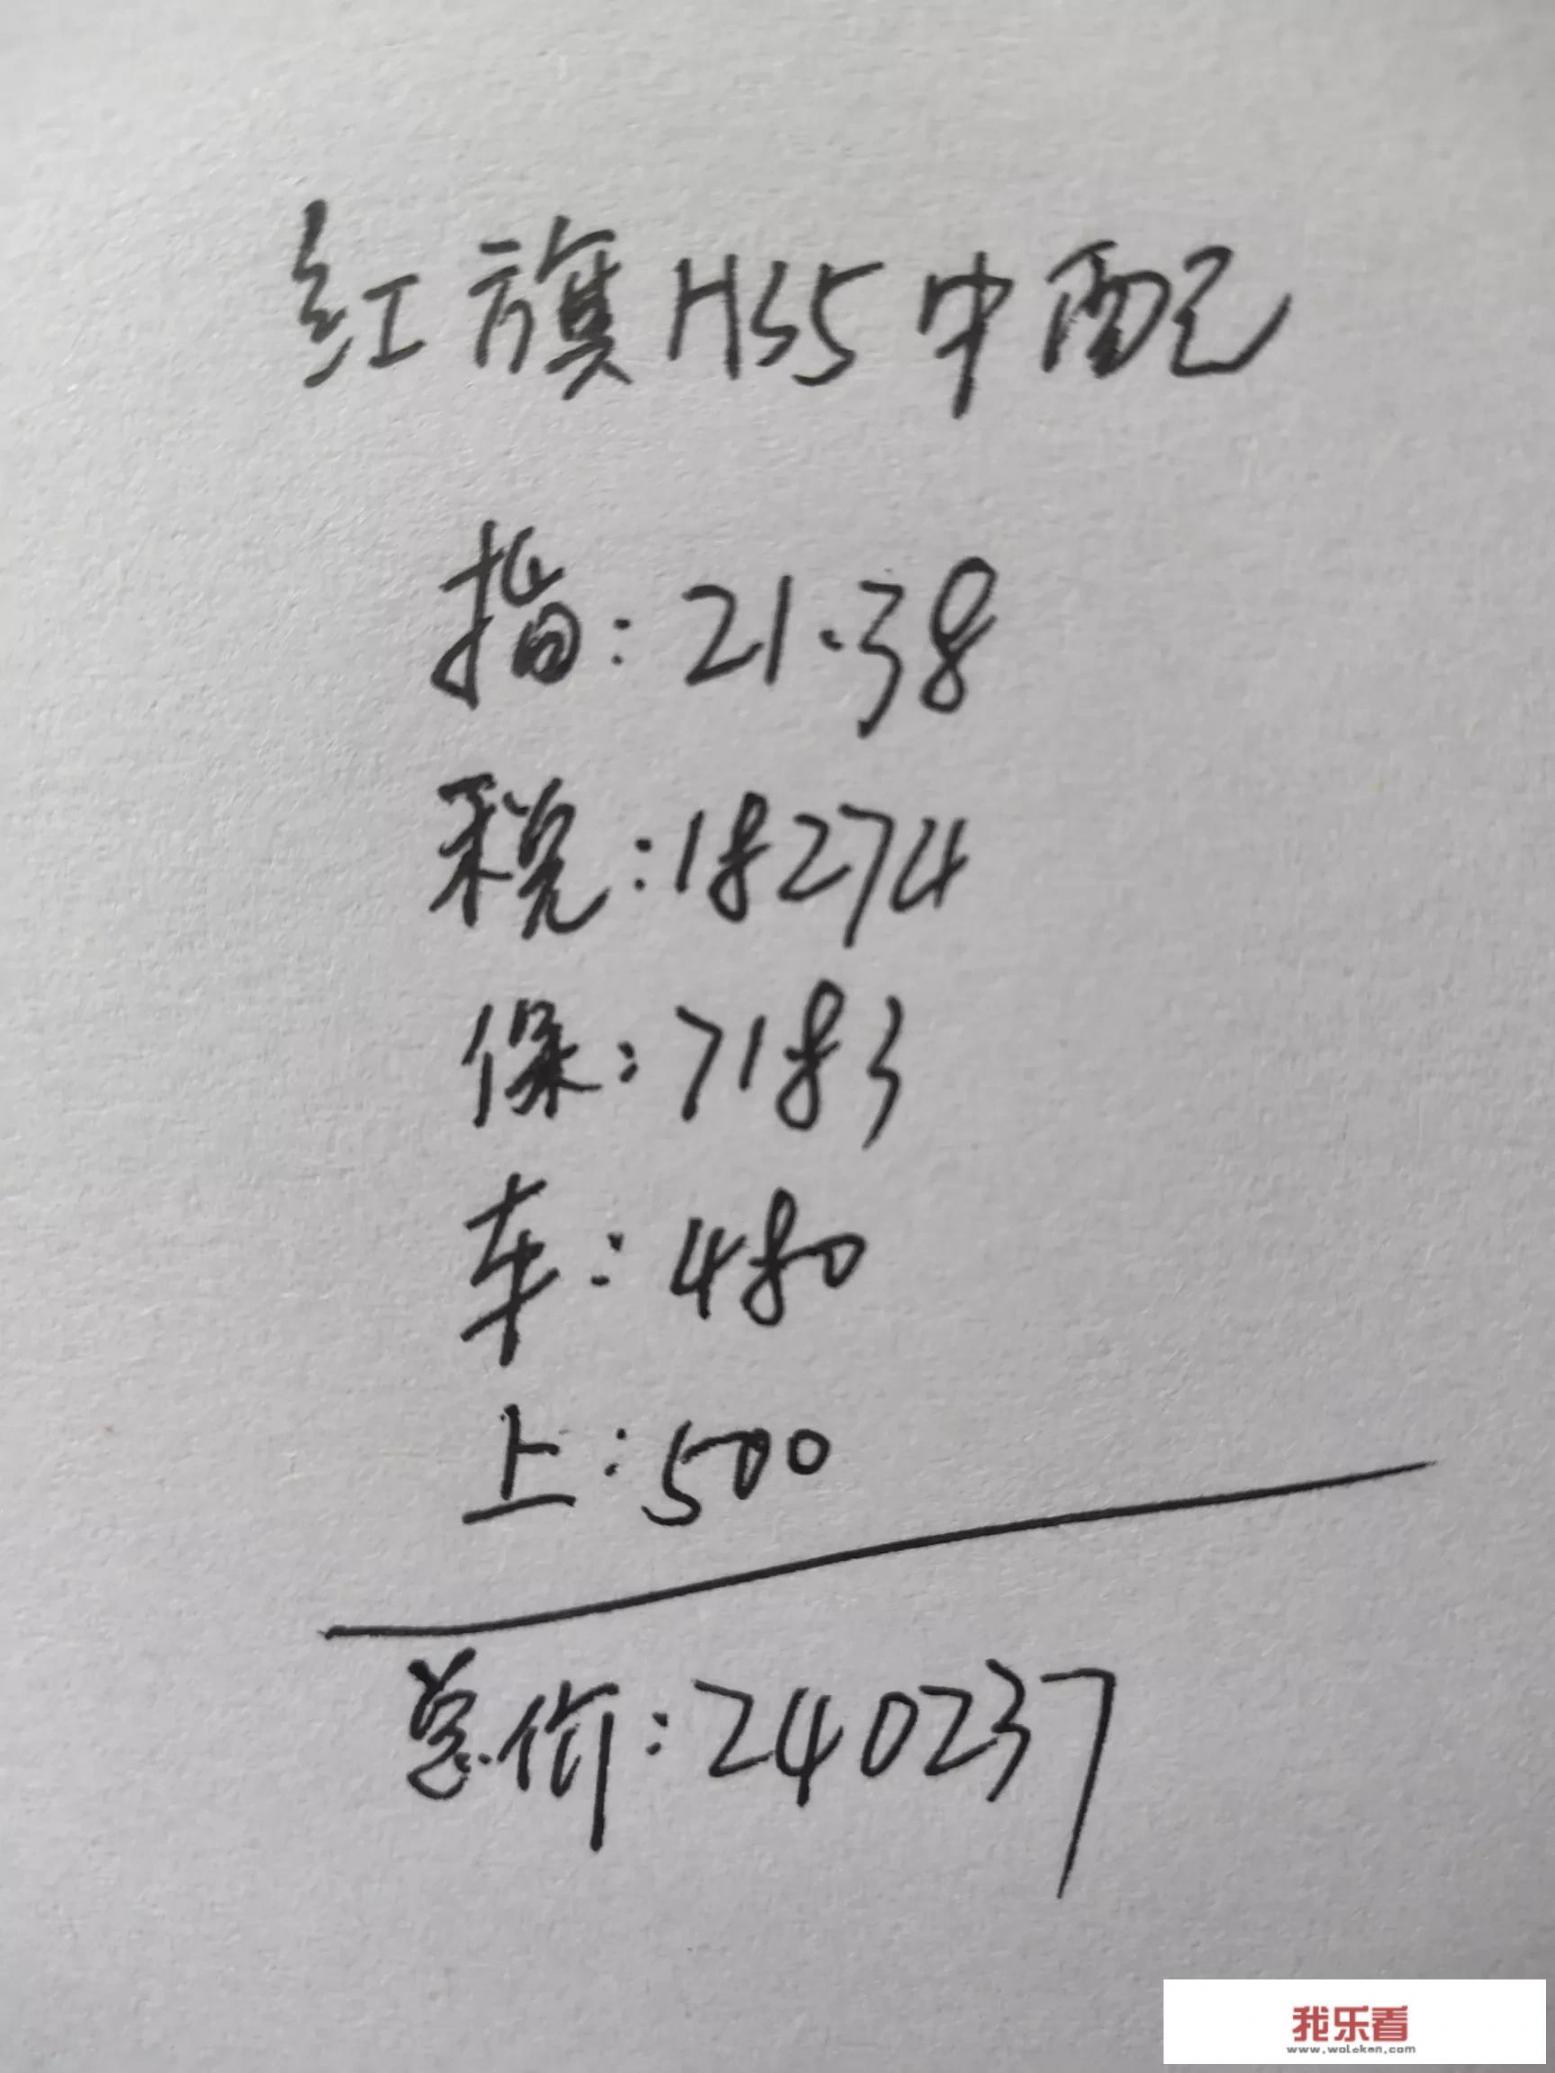 红旗HS5中配
指:21.38
税:18274
保:7183
车:480
上:500
总价:240237
我乐看
www.woleken.com